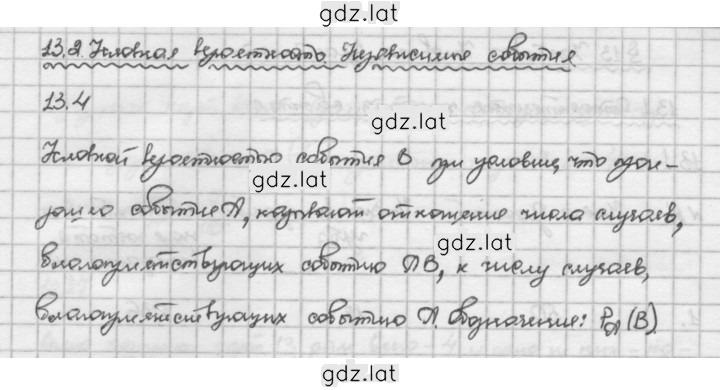 gdz.lat
13.2 Условная вероятность. Независимые события
13.4
gdz.lat
Условной вероятностью события B при условии, что прои-
gdz.lat
зошло событие A, называют отношение числа случаев,
gdz.lat
благоприятствующих событию AB, к числу случаев,
gdz.lat
благоприятствующих событию A. Обозначение: P_A(B).
gdz.lat